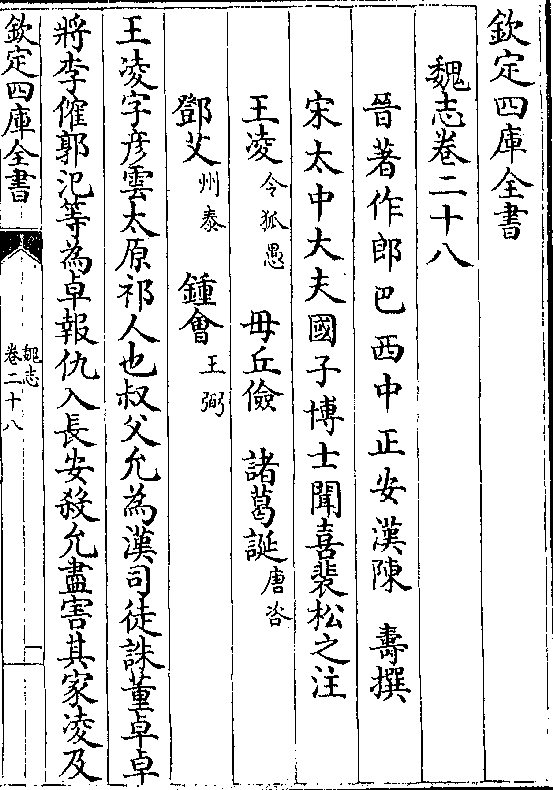 欽定四庫全書
魏志卷二十八
晉著作郎巴西中正安漢陳 壽撰
宋太中大夫國子博士聞喜裴松之注
王淩 令狐愚 毋丘儉 諸葛誕 唐咨
鄧艾 州泰 鍾會 王弼
王淩字彥雲太原祁人也叔父允為漢司徒誅董卓卓
將李傕郭汜等為卓報仇入長安殺允盡害其家淩及
欽定四庫全書
魏志
卷二十八
一